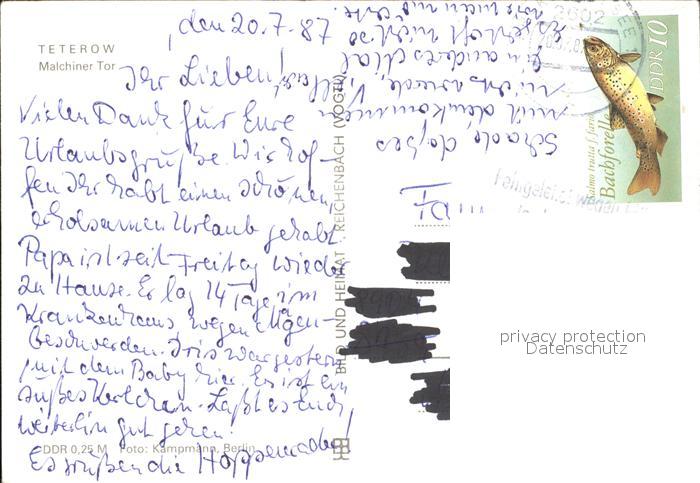 TETEROW
Malchiner Tor
den 20.7.87
Ihr Lieben!
Vielen Dank für Eure
Urlaubsgrüße. Wir hof-
fen Ihr habt einen schönen
erholsamen Urlaub gehabt.
Papa ist seit Freitag wieder
zu Hause. Er lag 14 Tage im
Krankenhaus wegen Magen-
beschwerden. Iris war gestern
mit dem Baby hier. Es ist ein
süßes Kerlchen. Laßt es Euch
weiterhin gut gehen.
Es grüßen die
DDR 0,25 M Foto: Kampmann, Berlin
Schade daß es
mit dem kommen
nichts wurde,
ein anderes Mal
BILD UND HEIMAT REICHENBACH (VOGTL)
DDR 10
Bachforelle
Salmo trutta f. fario
privacy protection
Datenschutz